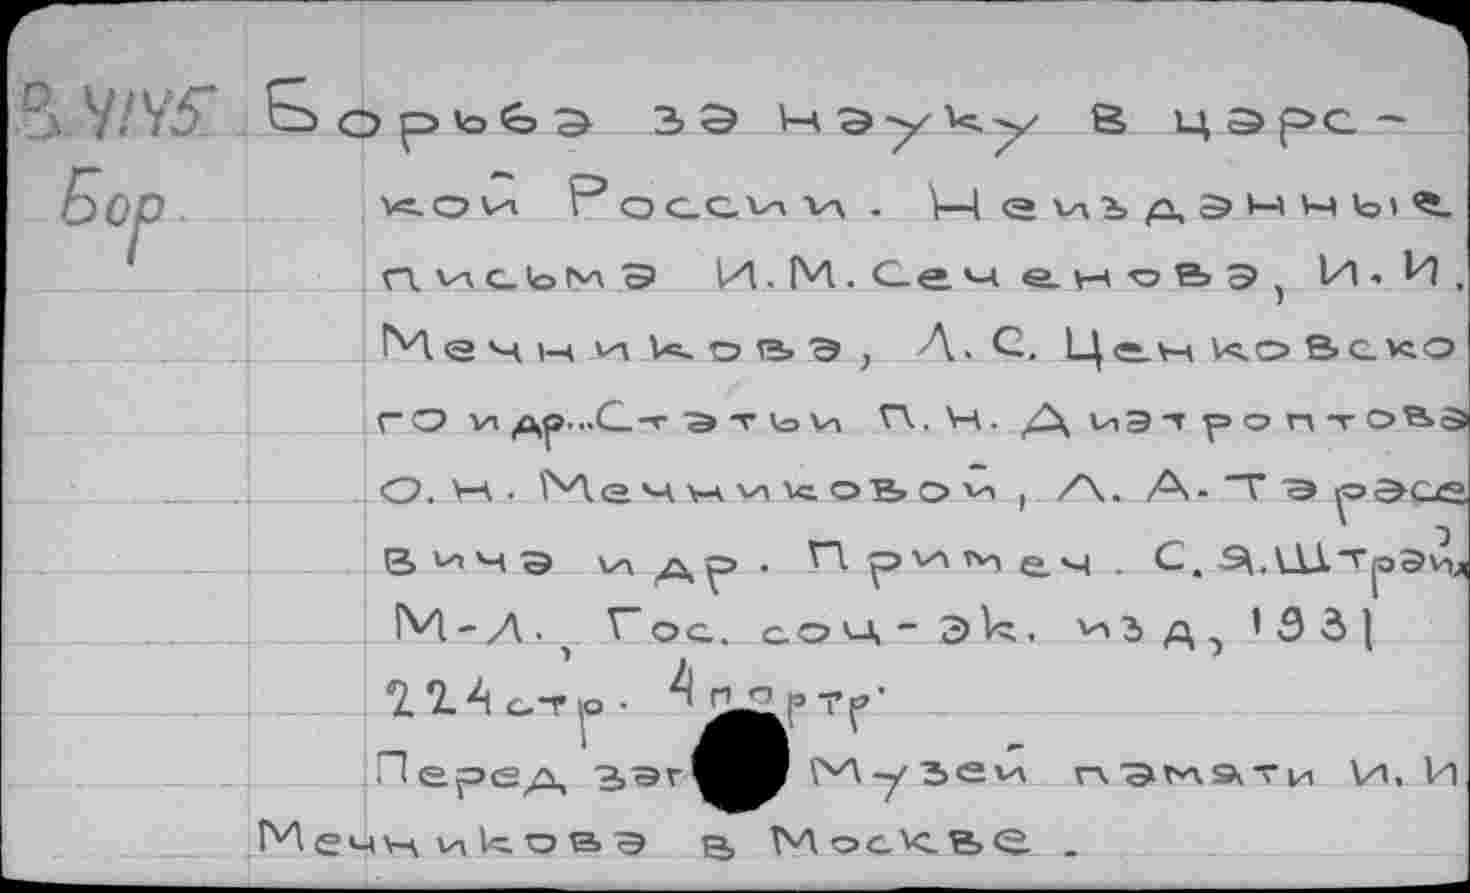 Борьба за науку в царс-
кой России. Неизданные
письма И.М.Сеченова, И.И.
Мечникова, Л.С. Ценковско
го и др...Статьи П.Н. Диатроптова
О.Н. Мечниковой, Л.А. Тарасе
вича и др. Примеч. С.Я.Штрайх
М-Л., Гос. соц-эк. изд, 1931
224 стр. 4 портр.
Перед заг Музей памяти И.И
Мечникова в Москве.
Бор.